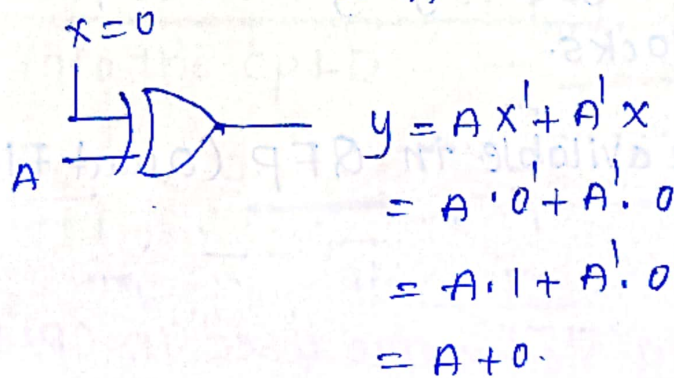 x=0
A
y = A x' + A' x
= A · 0' + A' · 0
= A · 1 + A' · 0
= A + 0.